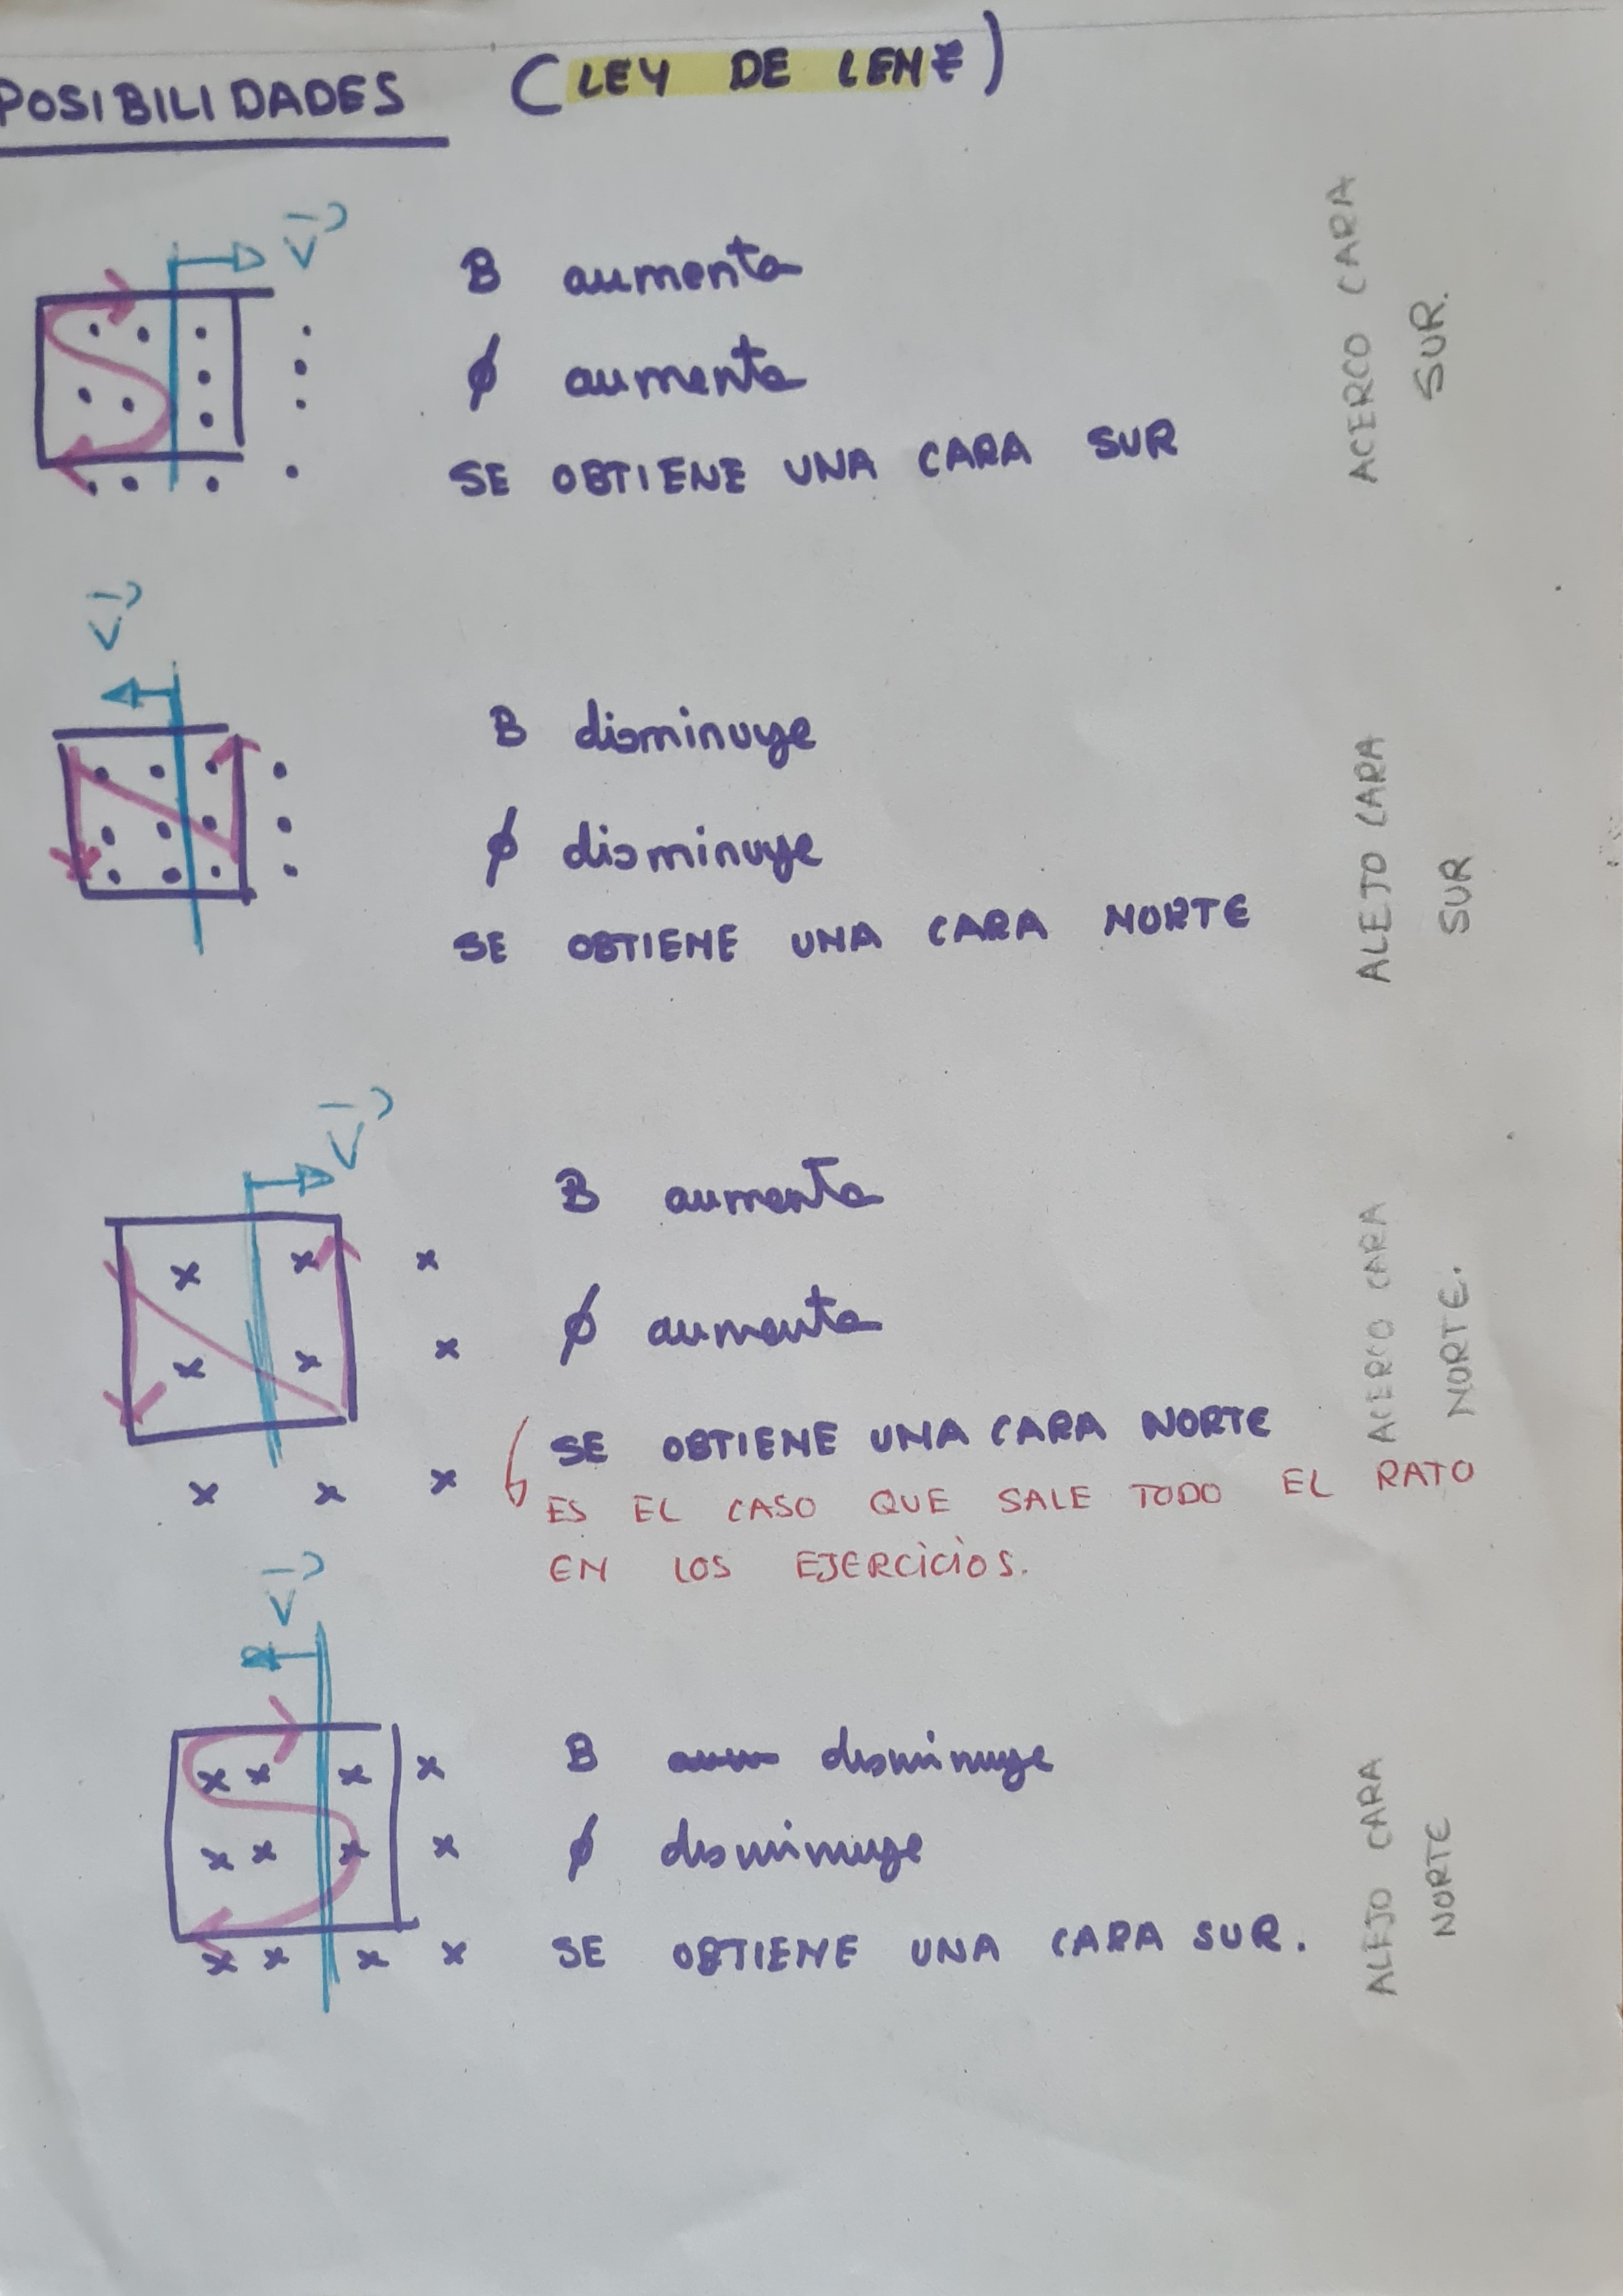 POSIBILIDADES (LEY DE LENZ)
V
B aumenta
ϕ aumenta
SE OBTIENE UNA CARA SUR
ACERCO CARA
SUR.
V
B disminuye
ϕ disminuye
SE OBTIENE UNA CARA NORTE
ALEJO CARA
SUR
V
B aumenta
ϕ aumenta
SE OBTIENE UNA CARA NORTE
ES EL CASO QUE SALE TODO EL RATO
EN LOS EJERCICIOS.
ACERCO CARA
NORTE.
V
B disminuye
ϕ disminuye
SE OBTIENE UNA CARA SUR.
ALEJO CARA
NORTE